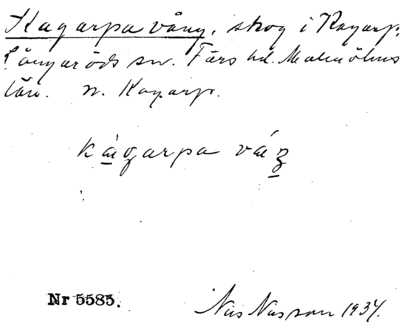 Kagarpa vång, skog i Kagarp,
Långaröds sn. Färs hd. Malmöhus
län. n. Kagarp.
kágarpa váŋ
Nr 5585.
Nils Nilsson 1934.